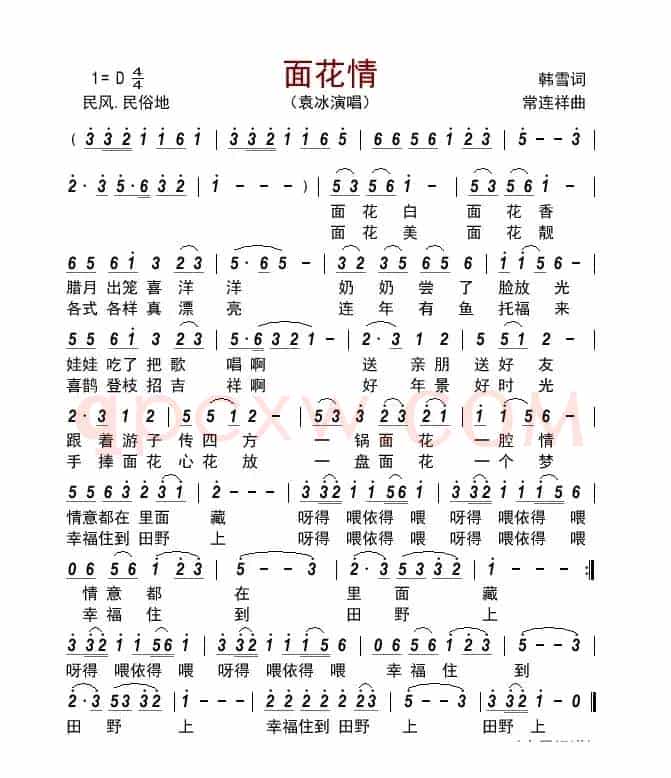 面花情
1= D 4/4
韩雪词
民风.民俗地
（袁冰演唱）
常连祥曲
( 3 3 2 1 1 6 1 | 3 3 2 1 1 6 5 | 6 6 5 6 1 2 3 |
2 · 3 5 · 6 3 2 | 1 - - - ) | 5 3 5 6 1 - | 5 3 5 6 1 - |
面 花 白 面 花 香
面 花 美 面 花 靓
6 5 6 1 3 2 3 | 5 · 6 5 - | 3 2 3 5 6 5 6 | 1 1 5 6 - |
腊月 出笼 喜 洋 洋 奶 奶 尝 了 脸放 光
各式 各样 真 漂 亮 连 年 有 鱼 托福 来
5 5 6 1 3 2 3 | 5 · 6 3 2 1 | 2 3 2 1 2 | 5 5 1 2 - |
娃娃 吃了 把 歌 唱啊 送 亲 朋 送 好 友
喜鹊 登枝 招 吉 祥啊 好 年 景 好 时 光
2 · 3 1 2 | 5 5 5 1 2 - | 5 3 2 2 3 2 1 | 1 1 2 6 - |
跟 着 游 子 传 四 方 一 锅 面 花 一 腔 情
手 捧 面 花 心 花 放 一 盘 面 花 一 个 梦
5 5 6 3 2 3 1 | 2 - - - | 3 3 2 1 1 5 6 1 | 3 3 2 1 1 1 5 6 |
情意都在 里面 藏 呀得 喂依得 喂 呀得 喂依得 喂
幸福住到 田野 上 呀得 喂依得 喂 呀得 喂依得 喂
0 6 5 6 1 2 3 | 5 - - 3 | 2 · 3 5 3 3 2 | 1 - - - :‖
情 意 都 在 里 面 藏
幸 福 住 到 田 野 上
3 3 2 1 1 5 6 | 3 3 2 1 1 1 5 6 | 0 6 5 6 1 2 3 | 5 - - 3 |
呀得 喂依得 喂 呀得 喂依得 喂 幸 福 住 到
2 · 3 5 3 3 2 | 1 - - - | 2 2 2 2 2 2 3 | 5 - - - | 2 2 3 1 - | 1 - - - ‖
田 野 上 幸福住到 田野 上 田野 上
qpcxw.COM